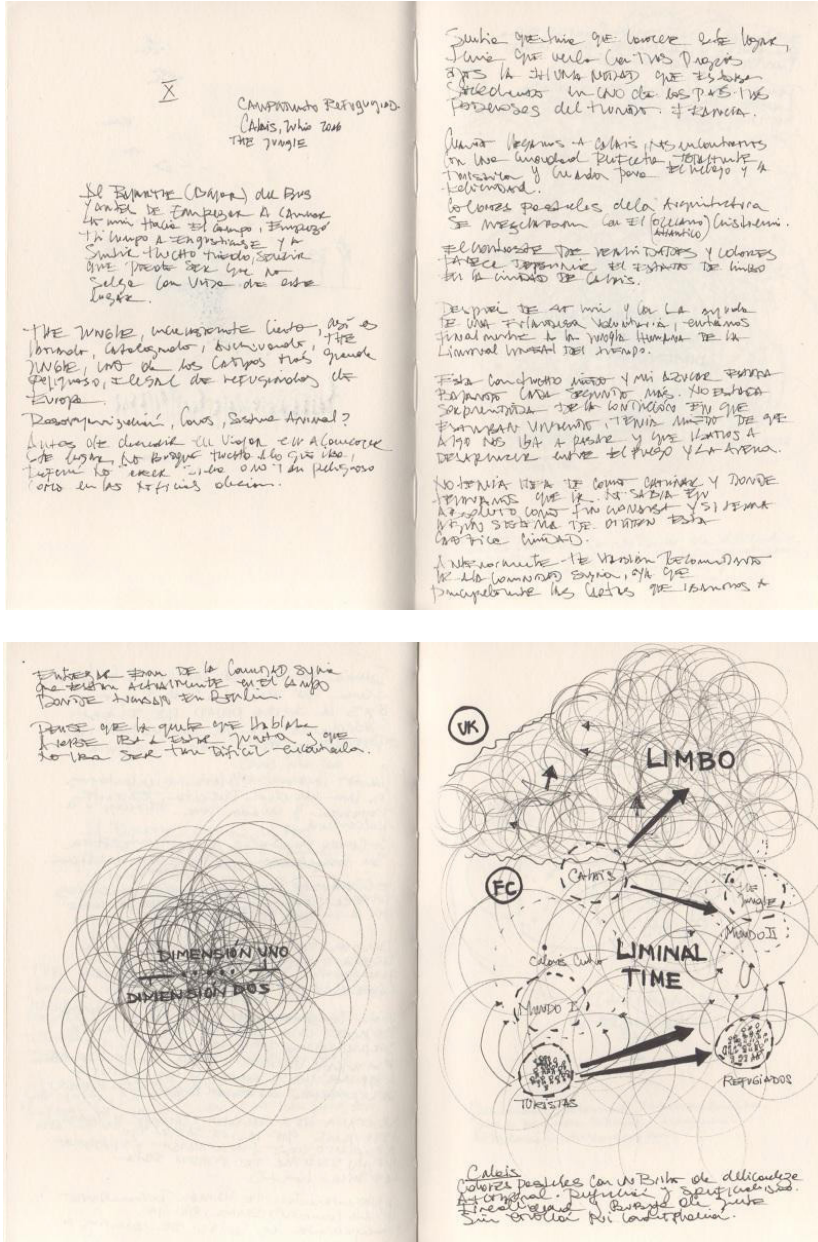 X
Campamento Refugiad
Calais, Julio 2016
THE JUNGLE
Al (Bajar) del Bus
y antes DE Empezar A Caminar
Hacia El campo, Empezó
mi cuerpo A y A
Sentir mucho miedo, sentía
que puede ser que no
salga con vida de este
lugar.
THE JUNGLE, cierto, así es
llamado, catalogado, THE
JUNGLE, uno de los campos más grande
peligroso, ilegal de refugiados de
Europa.
Desorganización, Caos, Animal?
Antes de decidir el viaje a conocer
este lugar, no busqué mucho a lo que iba,
no creer si era o no tan peligroso
como en las noticias decían.
Sentía que tenía que conocer este lugar,
Tenía que verla con mis propios
ojos la INHUMANIDAD que estaba
sucediendo en uno de los PAISES mas
poderosos del mundo. FRANCIA.
Cuando llegamos A Calais, nos encontramos
con una ciudad Perfecta, totalmente
y creada para El relajo y la
Felicidad.
Colores pasteles de la Arquitectura
se mezclaban con El (oceano Atlantico)
El contraste DE y colores
parece El Estado DE Limbo
EN LA CIUDAD DE Calais.
Después DE 45 min y con la ayuda
DE UNA voluntaria, entramos
finalmente A la Jungla Humana DE LA
del tiempo.
Estaba con mucho miedo y mi AZUCAR ESTABA
BAJANDO CADA SEGUNDO MÁS. NO ESTABA
SORPRENDIDA DE LA CONDICION EN QUE
ESTABAN VIVIENDO, TENIA MIEDO DE QUE
ALGO NOS IBA A PASAR Y QUE IBAMOS A
DESAPARECER ENTRE EL FUEGO Y LA ARENA.
NO TENIA IDEA DE COMO CAMINAR Y DONDE
TENIAMOS QUE IR. NI SABIA EN
ABSOLUTO COMO FUNCIONABA Y SI TENIA
ALGUN SISTEMA DE ORDEN ESTA
CAOTICA CIUDAD.
Anteriormente me habían Recomendado
IR A LA COMUNIDAD Syria, YA QUE
principalmente las cartas que ibamos A
Entregar Eran DE la Comunidad Syria
que están Actualmente en El campo
DONDE trabajo EN Berlin.
Pensé que la gente que Hablaba
Arabe IBA A Estar junta y que
no iba ser tan Difícil encontrarla.
DIMENSIÓN UNO
DIMENSIÓN DOS
UK
LIMBO
FC
CALAIS
THE Jungle
MUNDO II
Calais Centro
LIMINAL
TIME
MUNDO I
TURISTAS
REFUGIADOS
Calais
Colores pasteles con un Brillo de delicadeza
Artificial. y
y Burbuja de gente
Sin emoción ni